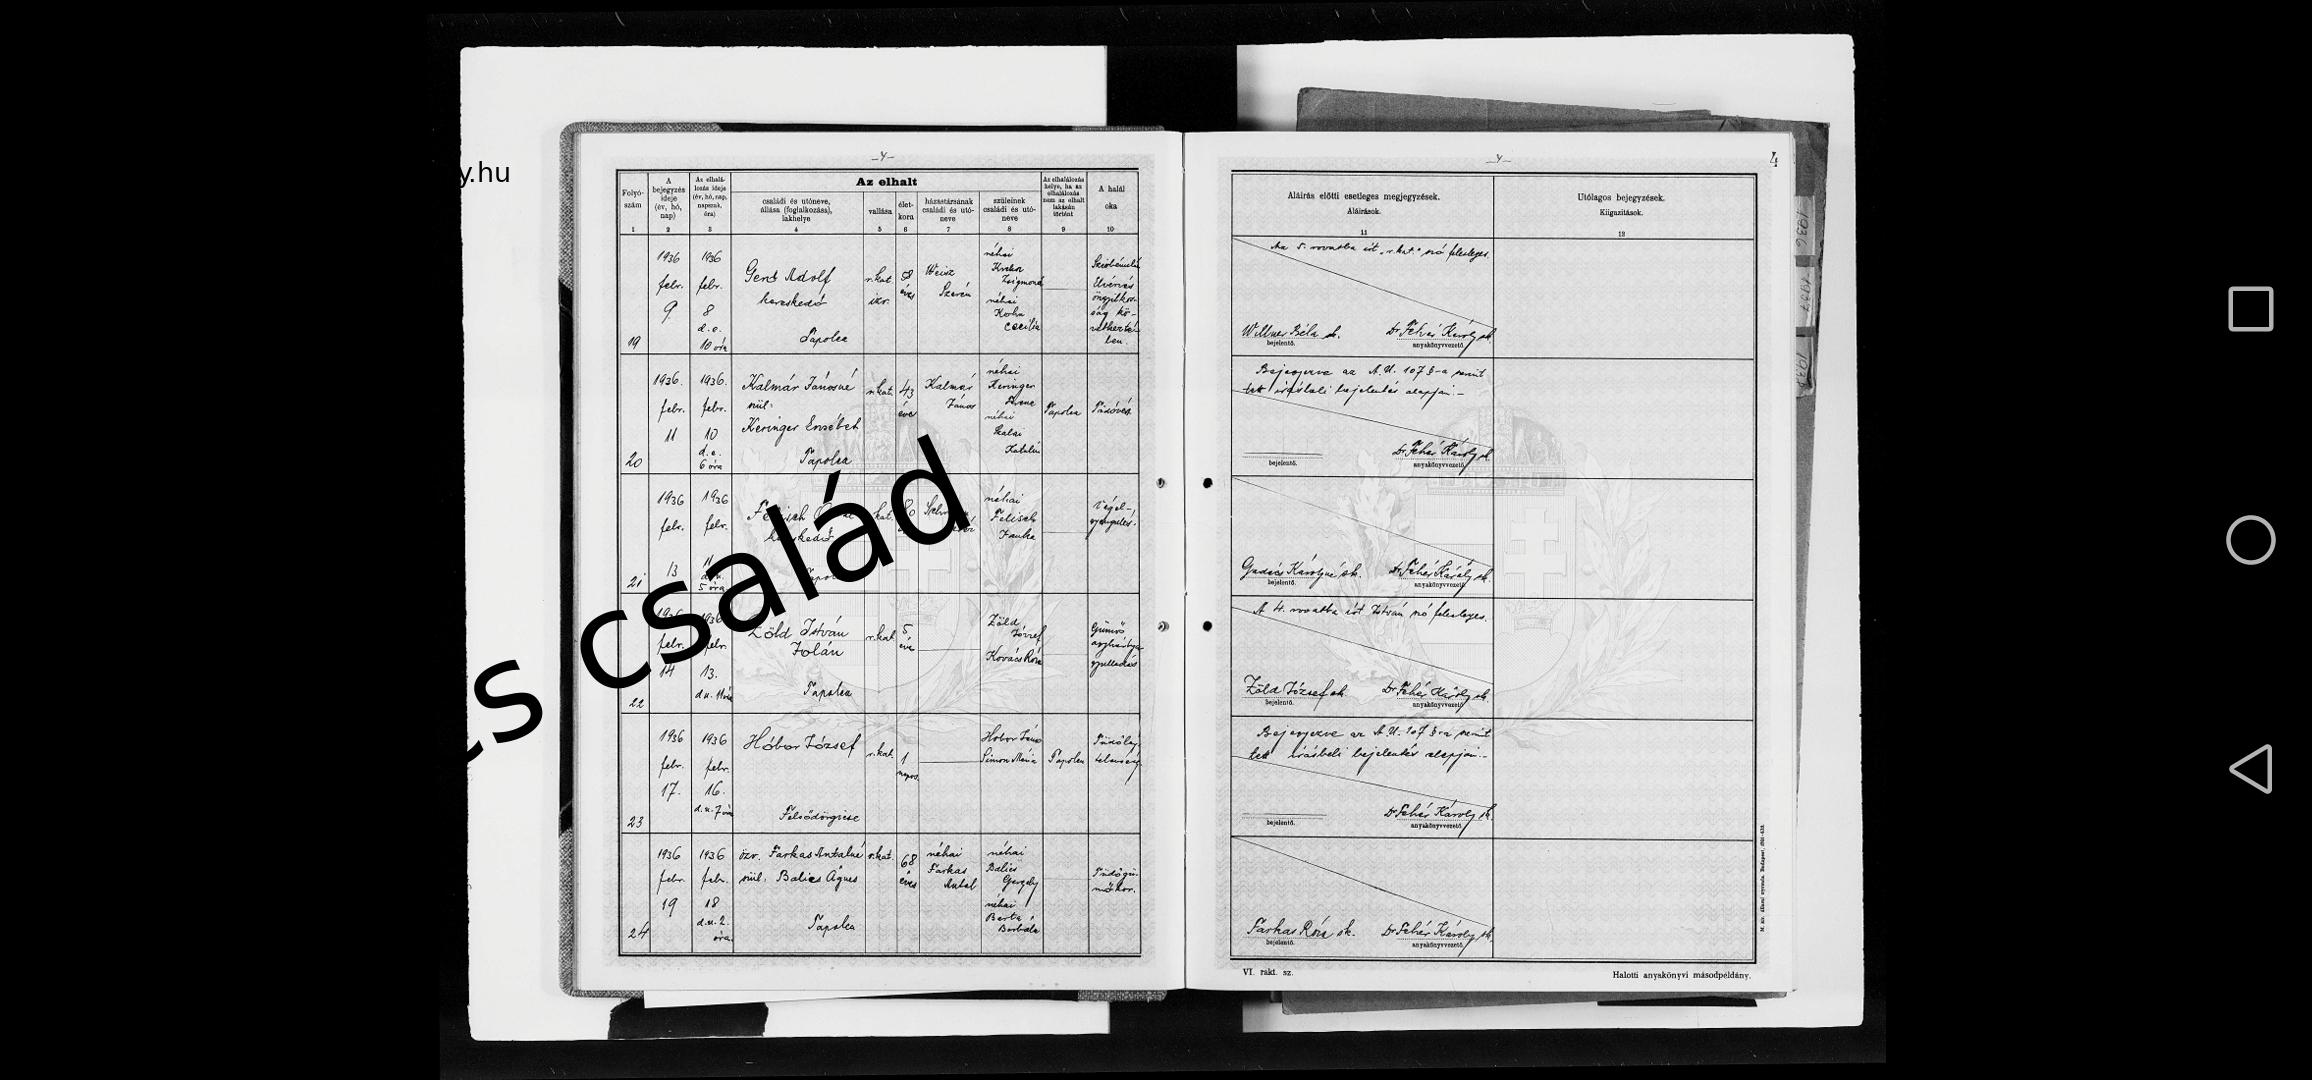 y.hu
cs család
- 4 -
Folyó-
szám
A
bejegyzés
ideje
(év, hó,
nap)
Az elhalá-
lozás ideje
(év, hó, nap,
napszak,
óra)
Az elhalt
családi és utóneve,
állása (foglalkozása),
lakhelye
vallása
élet-
kora
házastársának
családi és utó-
neve
szüleinek
családi és utó-
neve
Az elhalálozás
helye, ha az
elhalálozás
nem az elhalt
lakásán
történt
A halál
oka
1 2 3 4 5 6 7 8 9 10
19
1936
febr.
9.
1936
febr.
8
d. e.
10 óra
Adolf
kereskedő
Tapolca
r. kat.
izr.
éves
Weisz
Szerén
néhai
Zsigmond
néhai
Kohn
Cecília
20
1936.
febr.
11
1936.
febr.
10
d. e.
6 óra
Kalmár Jánosné
szül.
Keringer Erzsébet
Tapolca
r. kat.
43
éves
Kalmár
János
néhai
Keringer
Ferenc
néhai
Szalai
Katalin
Tapolca
Tüdővész
21
1936
febr.
13
1936
febr.
11
d. u.
5 óra
néhai
Felisch
Végel-
gyengülés.
22
1936
febr.
14
1936
febr.
13.
d. u. 11 óra
Zöld István
Zolán
Tapolca
r. kat.
5
éves
Zöld
József
Kovács Róza
Gümős
agyhártya
gyulladás
23
1936
febr.
17.
1936
febr.
16.
d. u. 7 óra
Hóbor József
Felsődörgicse
r. kat.
1
napos.
Hóbor János
Simon Mária
Tapolca
24
1936
febr.
19
1936
febr.
18
d. u. 2
óra.
özv. Farkas Antalné
szül. Balics Ágnes
Tapolca
r. kat.
68
éves
néhai
Farkas
Antal
néhai
Balics
Gergely
néhai
Borbála
Tüdőgü-
mőkor.
- 4 -
4
Aláírás előtti esetleges megjegyzések.
Aláírások.
11
Utólagos bejegyzések.
Kiigazítások.
12
Az 5. rovatba írt „r. kat." szó felesleges.
Willner Béla sk. Dr Fehér Károly sk.
bejelentő. anyakönyvvezető.
Bejegyezve az A. U. 107 §-a szerint
tett írásbeli bejelentés alapján.-
Dr Fehér Károly sk.
bejelentő. anyakönyvvezető.
Károlyné sk. Dr Fehér Károly sk.
bejelentő. anyakönyvvezető.
A 4. rovatba írt István szó felesleges.
Zöld József sk. Dr Fehér Károly sk.
bejelentő. anyakönyvvezető.
Bejegyezve az A. U. 107 §-a szerint
tett írásbeli bejelentés alapján.-
Dr Fehér Károly sk.
bejelentő. anyakönyvvezető.
Farkas Róza sk. Dr Fehér Károly sk.
bejelentő. anyakönyvvezető.
VI. rakt. sz.
Halotti anyakönyvi másodpéldány.
1936
1937